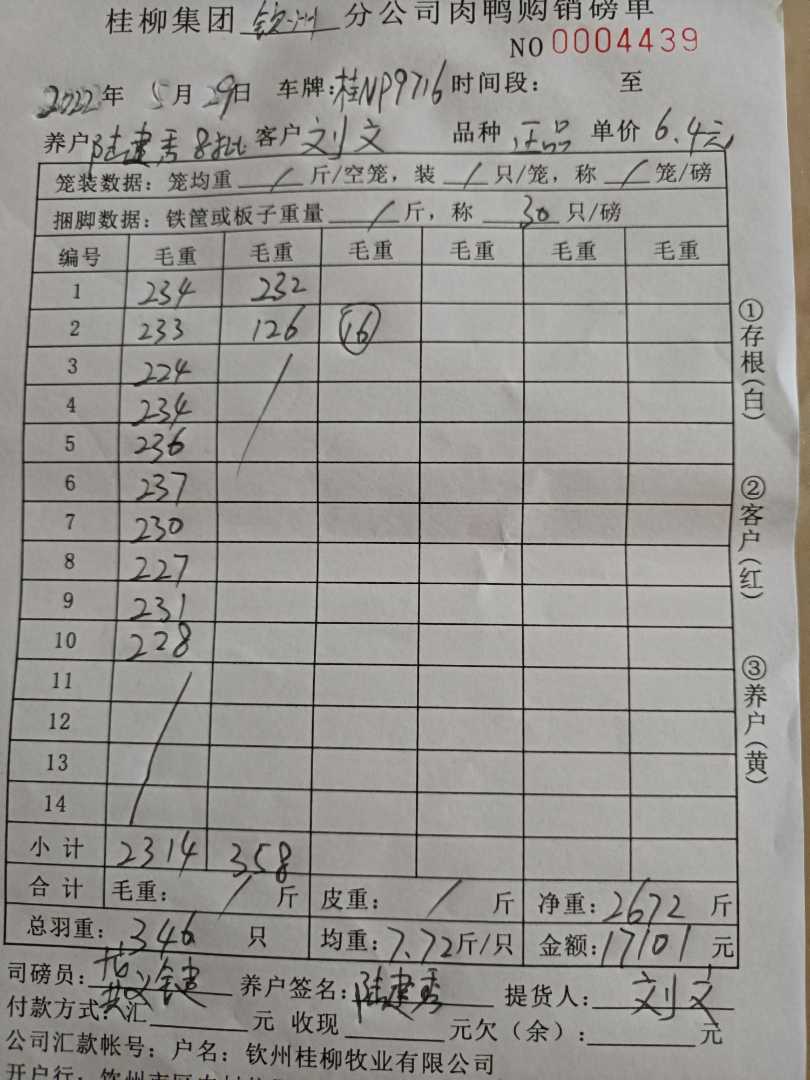 桂柳集团 钦州 分公司肉鸭购销磅单
NO 0004439
2022年 5月 29日 车牌:桂NP9716 时间段: 至
养户 陆建秀 8批 客户 刘文 品种 正品 单价 6.4元
笼装数据: 笼均重 / 斤/空笼, 装 / 只/笼, 称 / 笼/磅
捆脚数据: 铁筐或板子重量 / 斤, 称 30 只/磅
编号 毛重 毛重 毛重 毛重 毛重 毛重
1 234 232
2 233 126 16
3 224 /
4 234
5 236
6 237
7 230
8 227
9 231
10 228
11 /
12
13
14
小计 2314 358
合计 毛重: / 斤 皮重: / 斤 净重: 2672 斤
总羽重: 346 只 均重: 7.72斤/只 金额: 17101 元
司磅员: 养户签名: 陆建秀 提货人: 刘文
付款方式: 汇 元 收现 元欠(余): 元
公司汇款帐号: 户名: 钦州桂柳牧业有限公司
开户行:
①存根(白)
②客户(红)
③养户(黄)